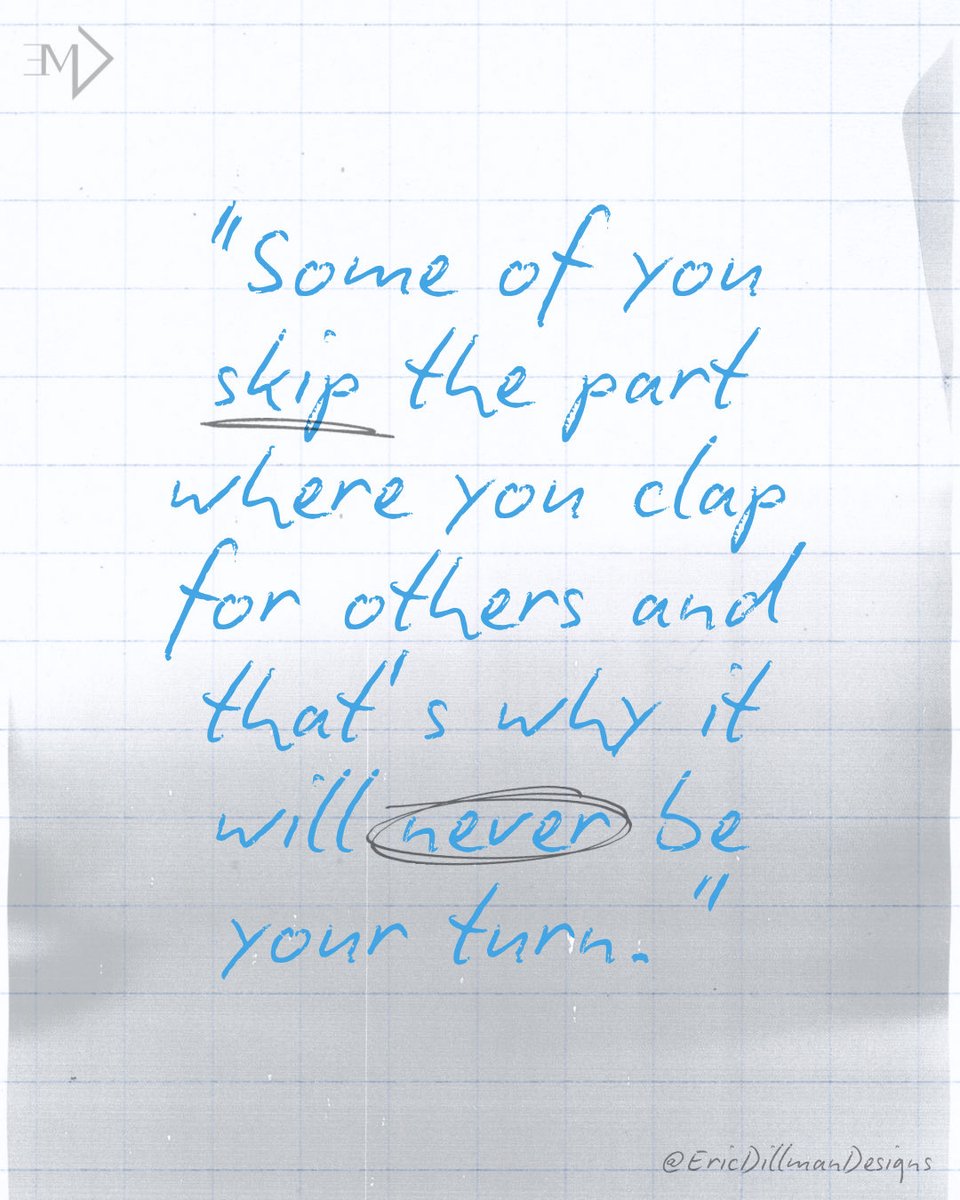 EMD
"Some of you
skip the part
where you clap
for others and
that's why it
will never be
your turn."
@EricDillmanDesigns